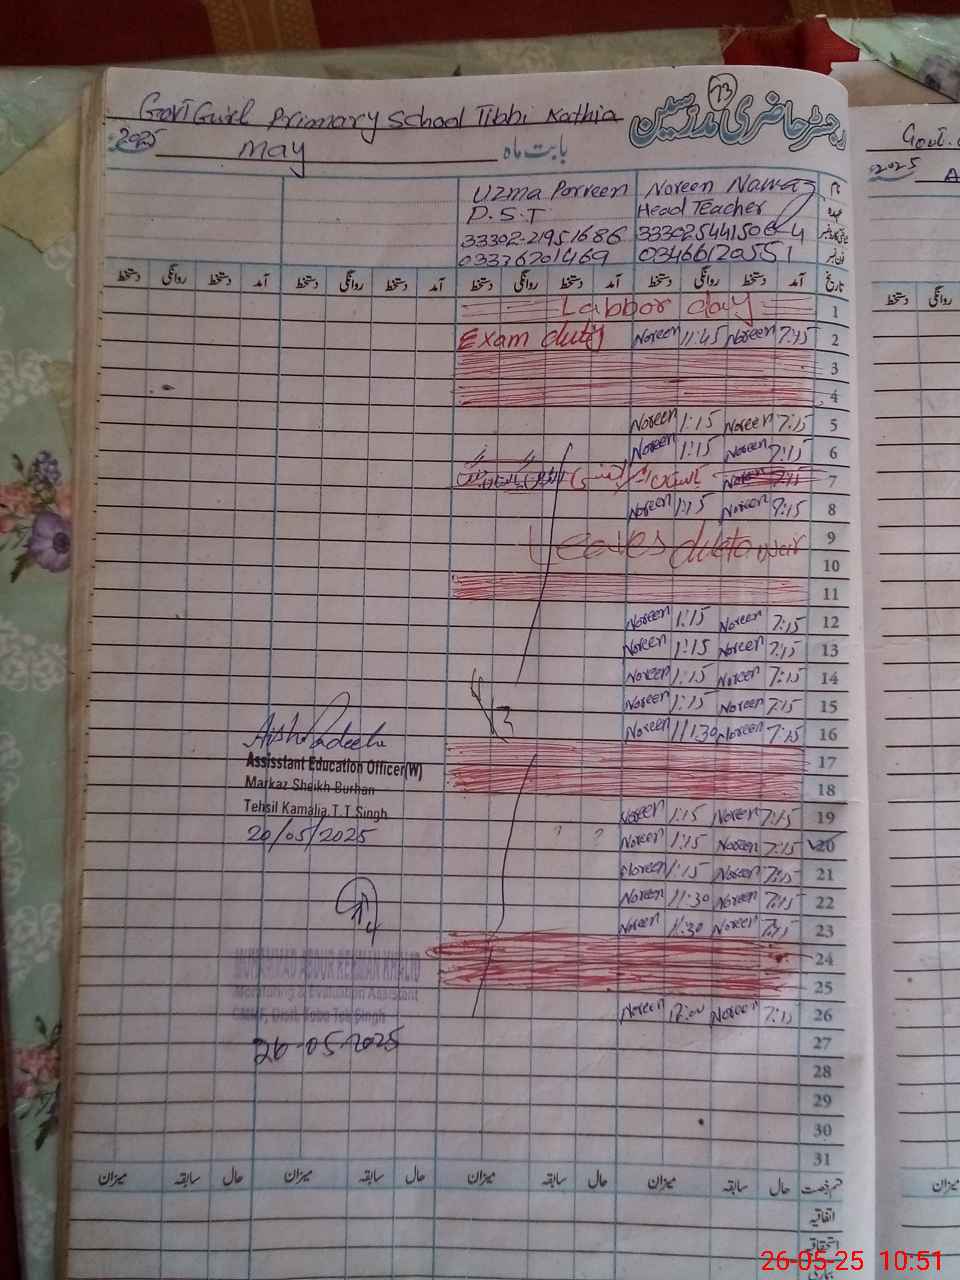 رجسٹر حاضری مدرسین
73
Govt Gurl Primary School Tibbi Kathia
2025 May بابت ماہ
نام Noreen Nawaz Uzma Parveen
عہدہ Head Teacher P.S.T
33302-21951686
03466120551 03376201469
تاریخ آمد دستخط روانگی دستخط آمد دستخط روانگی دستخط آمد دستخط روانگی دستخط آمد دستخط روانگی دستخط
1 Labbor day
2 7:45 Noreen 11:45 Noreen Exam duty
3
4
5 7:15 Noreen 1:15 Noreen
6 7:15 Noreen 1:15 Noreen
7 7:15 Noreen
8 7:15 Noreen 1:15 Noreen
9 Leaves due to war
10
11
12 7:15 Noreen 1:15 Noreen
13 7:15 Noreen 1:15 Noreen
14 7:15 Noreen 1:15 Noreen
15 7:15 Noreen 1:15 Noreen
16 7:15 Noreen 11:30 Noreen
17
18
19 7:15 Noreen 1:15 Noreen
20 7:15 Noreen 1:15 Noreen ? ?
21 7:15 Noreen 1:15 Noreen
22 7:15 Noreen 11:30 Noreen
23 7:15 Noreen 11:30 Noreen
24
25
26 7:15 Noreen 12:00 Noreen
27
28
29
30
31
Assisstant Education Officer(W)
Markaz Sheikh Burhan
Tehsil Kamalia, T.T Singh
20/05/2025
Monitoring & Evaluation Assistant
26-05-2025
حال سابقہ میزان حال سابقہ میزان حال سابقہ میزان حال سابقہ میزان
اتفاقیہ
استحقاقیہ
Govt.
2025
روانگی دستخط
میزان
26-05-25 10:51